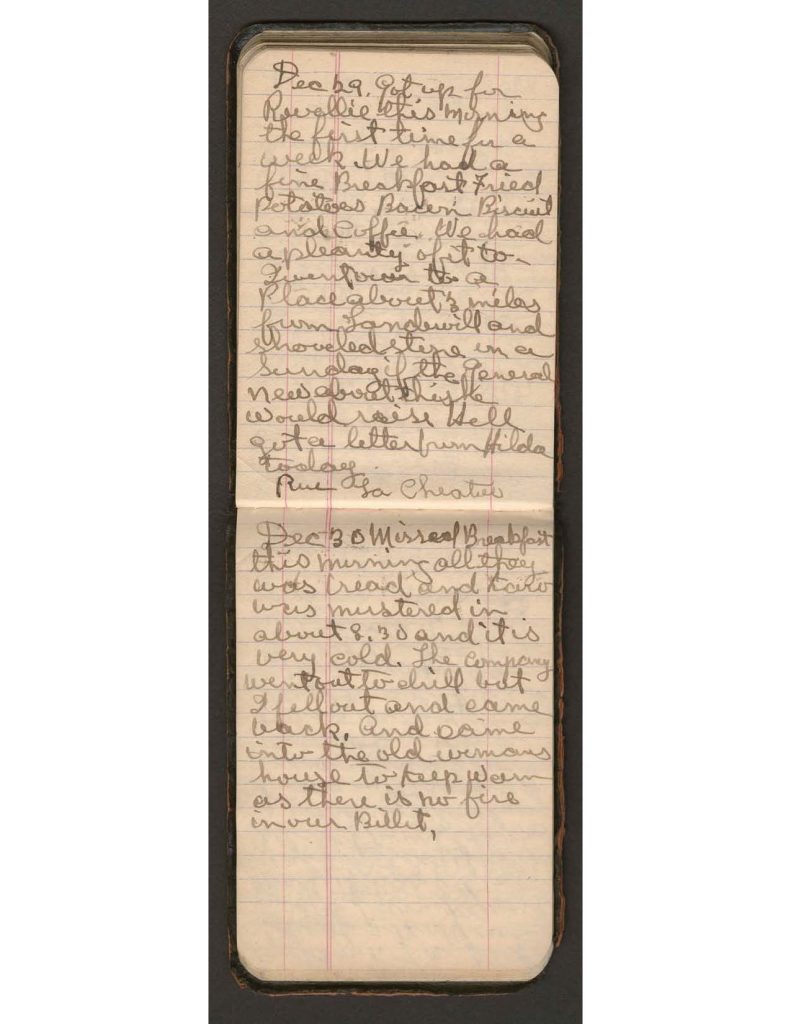 Dec 29. Got up for
Revallie this Morning
the first time for a
week We had a
fine Breakfast Fried
Potatoes Bacon Biscuit
and Coffie. We had
a pleanty of it to-
I went over to a
Place about 3 miles
from and
shoveled stone on a
Sunday if the General
new about this He
would raise Hell
got a letter from Hilda
today
Rue La
Dec 30 Missed Breakfast
this morning all they
was bread and
was mustered in
about 8.30 and it is
very cold. The Company
went out to drill but
I fell out and came
back. And came
into the old womans
house to keep warm
as there is no fire
in our Billit,